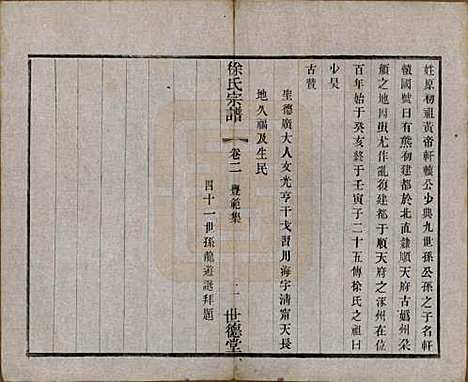 姓原初祖黃帝軒轅公少典九世孫公孫之子名軒
轅國號曰有熊初建都於北直隸順天府古嬀州朵
頗之地因蚩尤作亂復建都于順天府之涿州在位
百年始于癸亥終于壬寅子二十五傳徐氏之祖曰
少昊
古贊
聖德廣大人文光亨干戈習用海宇清甯天長
地久福及生民
四十一世孫龍遊謎拜題
徐氏宗譜
卷二
豐範集
一
世德堂